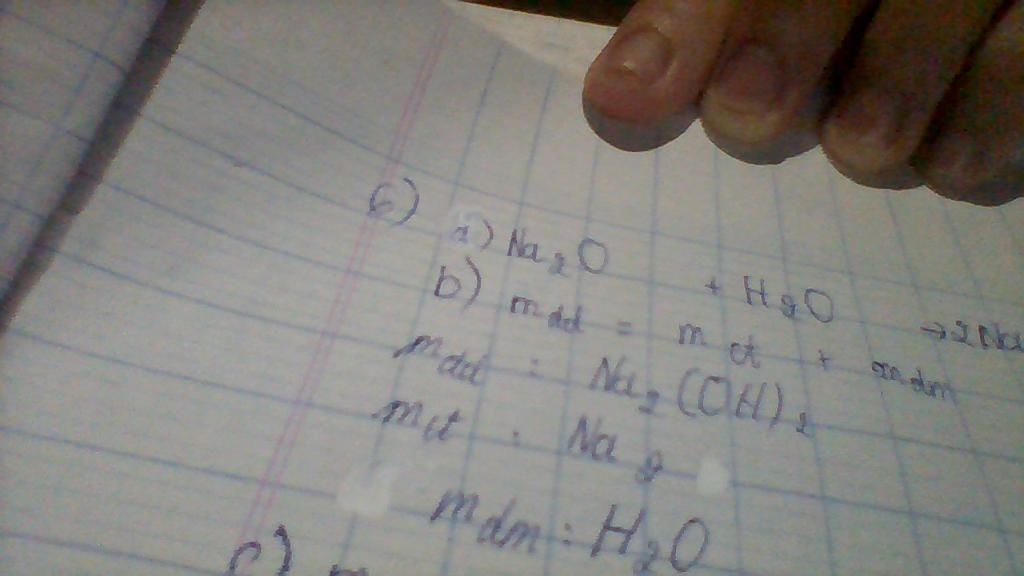 6) a) Na₂O + H₂O → 2Na
b) mdd = mct + mdm
mdd : Na₂(OH)₂
mct : Na₂
mdm : H₂O
c) m